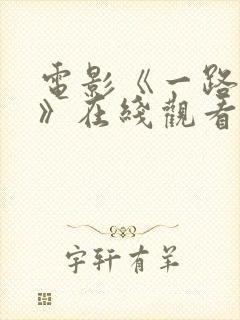 電影《一路
》在綫觀看
宇軒有羊